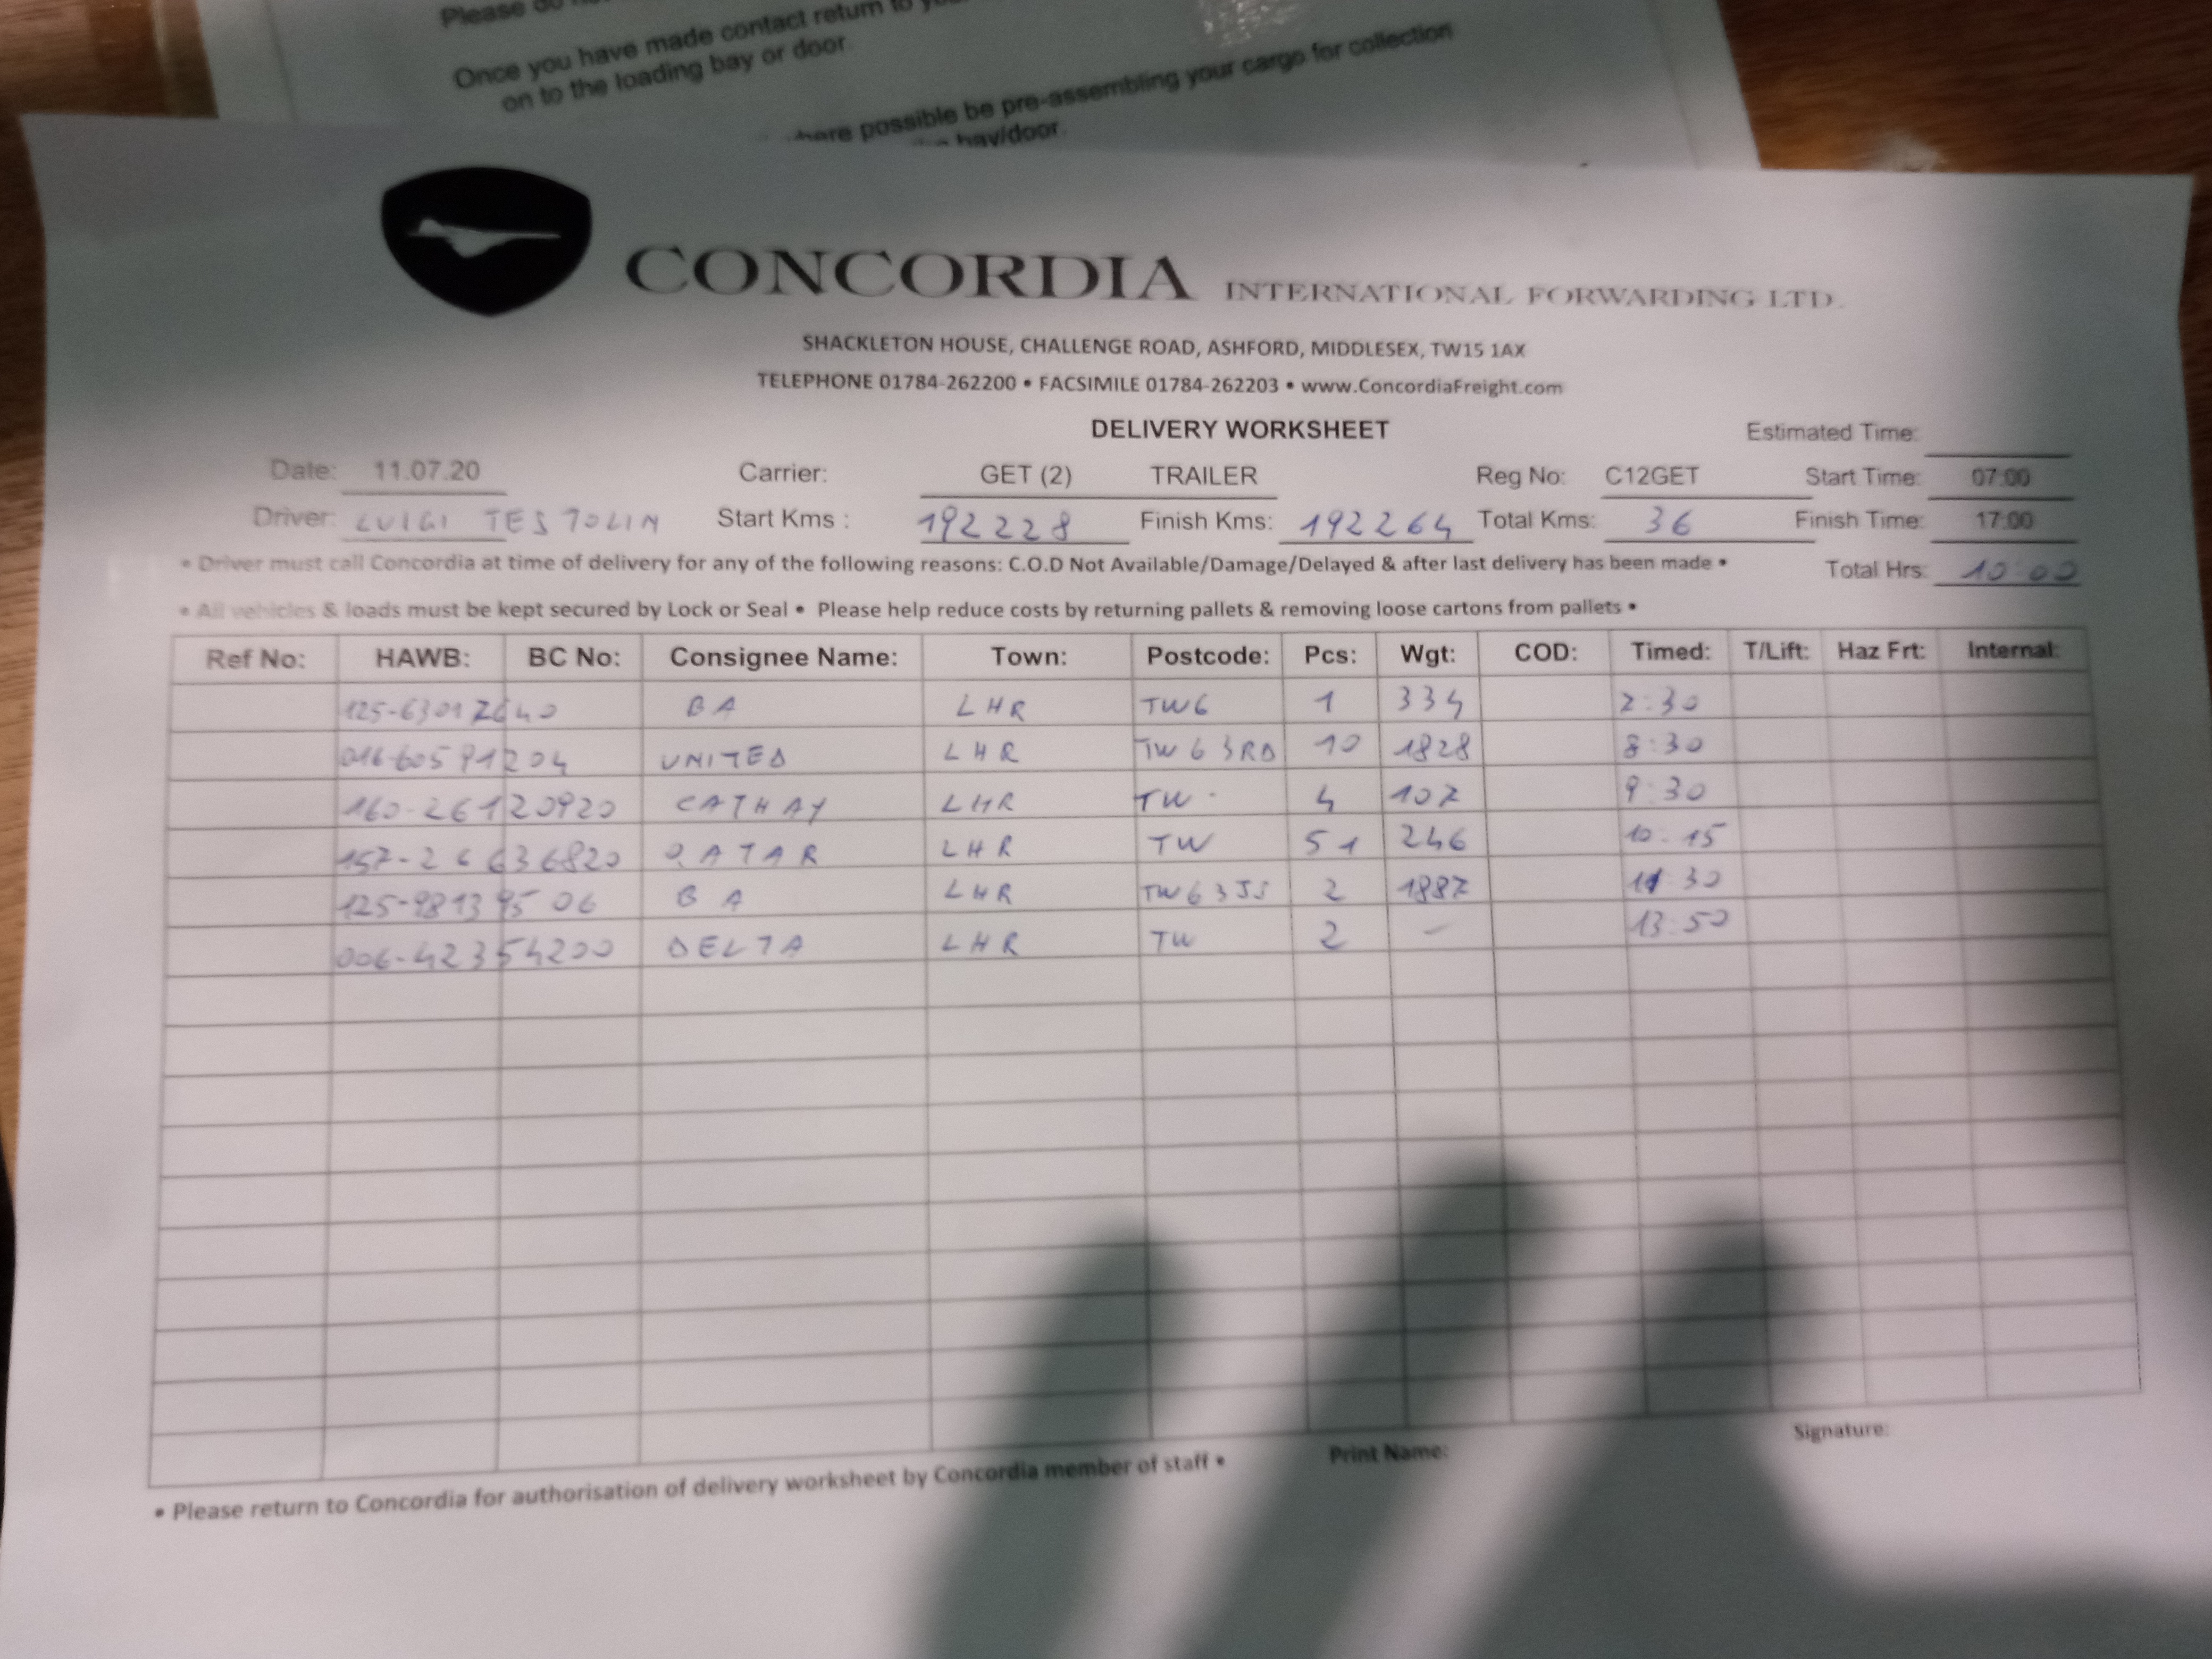 Please do
Once you have made contact return to
on to the loading bay or door
where possible be pre-assembling your cargo for collection
bay/door.
CONCORDIA INTERNATIONAL FORWARDING LTD.
SHACKLETON HOUSE, CHALLENGE ROAD, ASHFORD, MIDDLESEX, TW15 1AX
TELEPHONE 01784-262200 • FACSIMILE 01784-262203 • www.ConcordiaFreight.com
DELIVERY WORKSHEET Estimated Time:
Date: 11.07.20 Carrier: GET (2) TRAILER Reg No: C12GET Start Time: 07:00
Driver: LUIGI TESTOLIN Start Kms : 192228 Finish Kms: 192264 Total Kms: 36 Finish Time: 17:00
• Driver must call Concordia at time of delivery for any of the following reasons: C.O.D Not Available/Damage/Delayed & after last delivery has been made • Total Hrs: 10:00
• All vehicles & loads must be kept secured by Lock or Seal • Please help reduce costs by returning pallets & removing loose cartons from pallets •
Ref No: HAWB: BC No: Consignee Name: Town: Postcode: Pcs: Wgt: COD: Timed: T/Lift: Haz Frt: Internal:
BA LHR TW6 1 334 7:30
016-60591204 UNITED LHR TW6 3RD 10 1828 8:30
160-26120920 CATHAY LHR TW 4 107 9:30
157-26636820 QATAR LHR TW 51 246 10:15
125-98139506 BA LHR TW6 3JS 2 1887 11:30
006-42354200 DELTA LHR TW 2 - 13:50
• Please return to Concordia for authorisation of delivery worksheet by Concordia member of staff • Print Name: Signature: